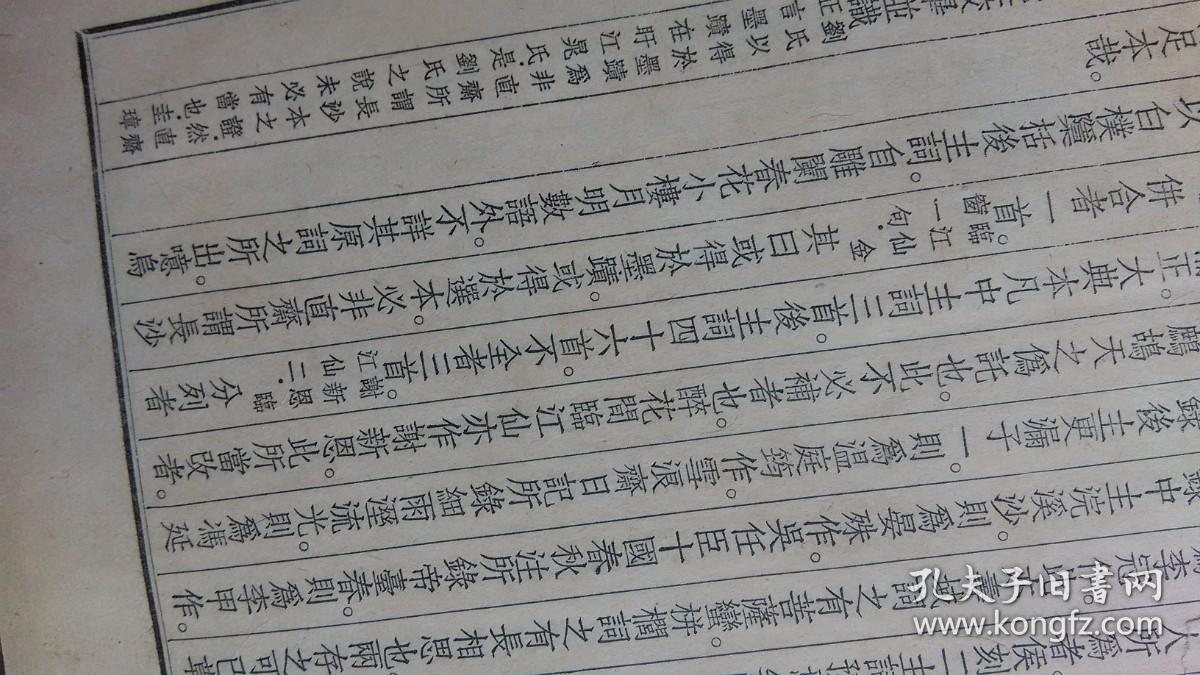 壽域詞之有菩薩蠻。栟櫚詞之有長相思也。兩存之可已。草
錄中主浣溪沙。則為晏殊作。吳任臣十國春秋注所錄帝臺春。則為李甲作。
錄後主更漏子一則。為溫庭筠作。雪浪齋日記所錄細雨溼流光。則為馮延
鷓鴣天之偽託也。此不必補者也。醉花間臨江仙亦作謝新恩。此所當改者。
正大典本凡中主詞二首後主詞四十六首。不全者三首。謝新恩.臨江仙二.分列者
併合者一首。臨江仙金窗一句.其曰或得於墨蹟。或得於選本。必非直齋所謂長沙
以白樸檃括後主詞。自雕闌春花小樓月明數語外。不詳其原詞之所出。噫烏
足本哉。
劉氏以得於墨蹟為非直齋所謂長沙本之證.然直齋
言墨蹟在盱江晁氏.是劉氏之說未必有當也.圭璋
並識
孔夫子旧書网
www.kongfz.com